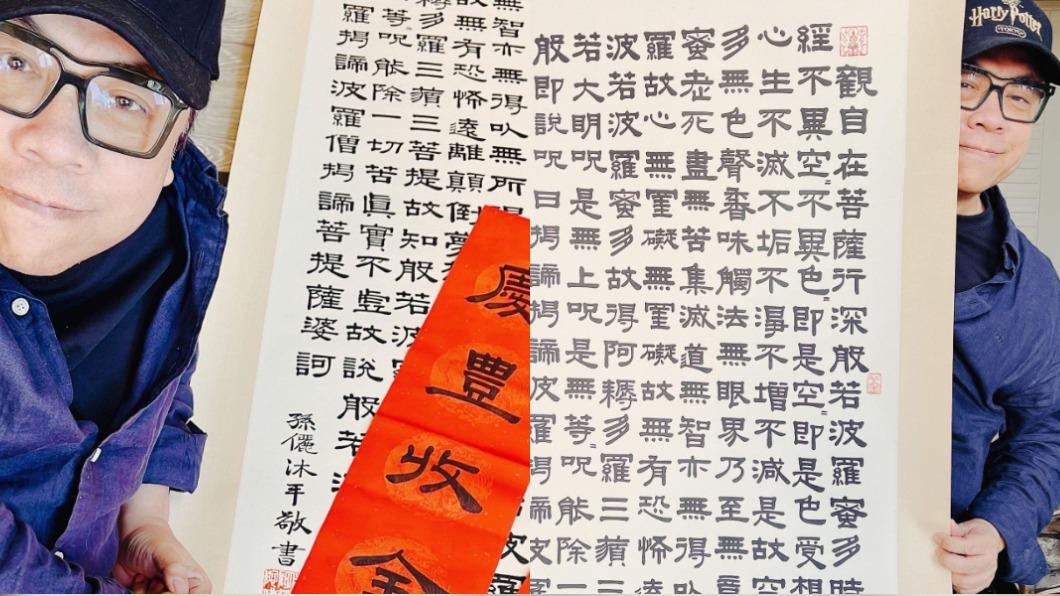 Harry Potter
TOKYO
般若波羅蜜多心經
觀自在菩薩行深般若波羅蜜多時
不異空不異色即是空即是色受想
生不滅不垢不淨不增不減是故空
無色聲香味觸法無眼界乃至無
老死盡無苦集滅道無智亦無得以
故心無罣礙無罣礙故無有恐怖遠
若波羅蜜多故得阿耨多羅三藐
大明咒是無上咒是無等咒能除一
即說咒曰揭諦揭諦波羅揭諦波羅
無智亦無得以無所得
故無有恐怖遠離顛倒夢
耨多羅三藐三菩提故知般若波
等咒能除一切苦真實不虛故說般若波
羅揭諦波羅僧揭諦菩提薩婆訶
孫儷沐手敬書
慶豐收全